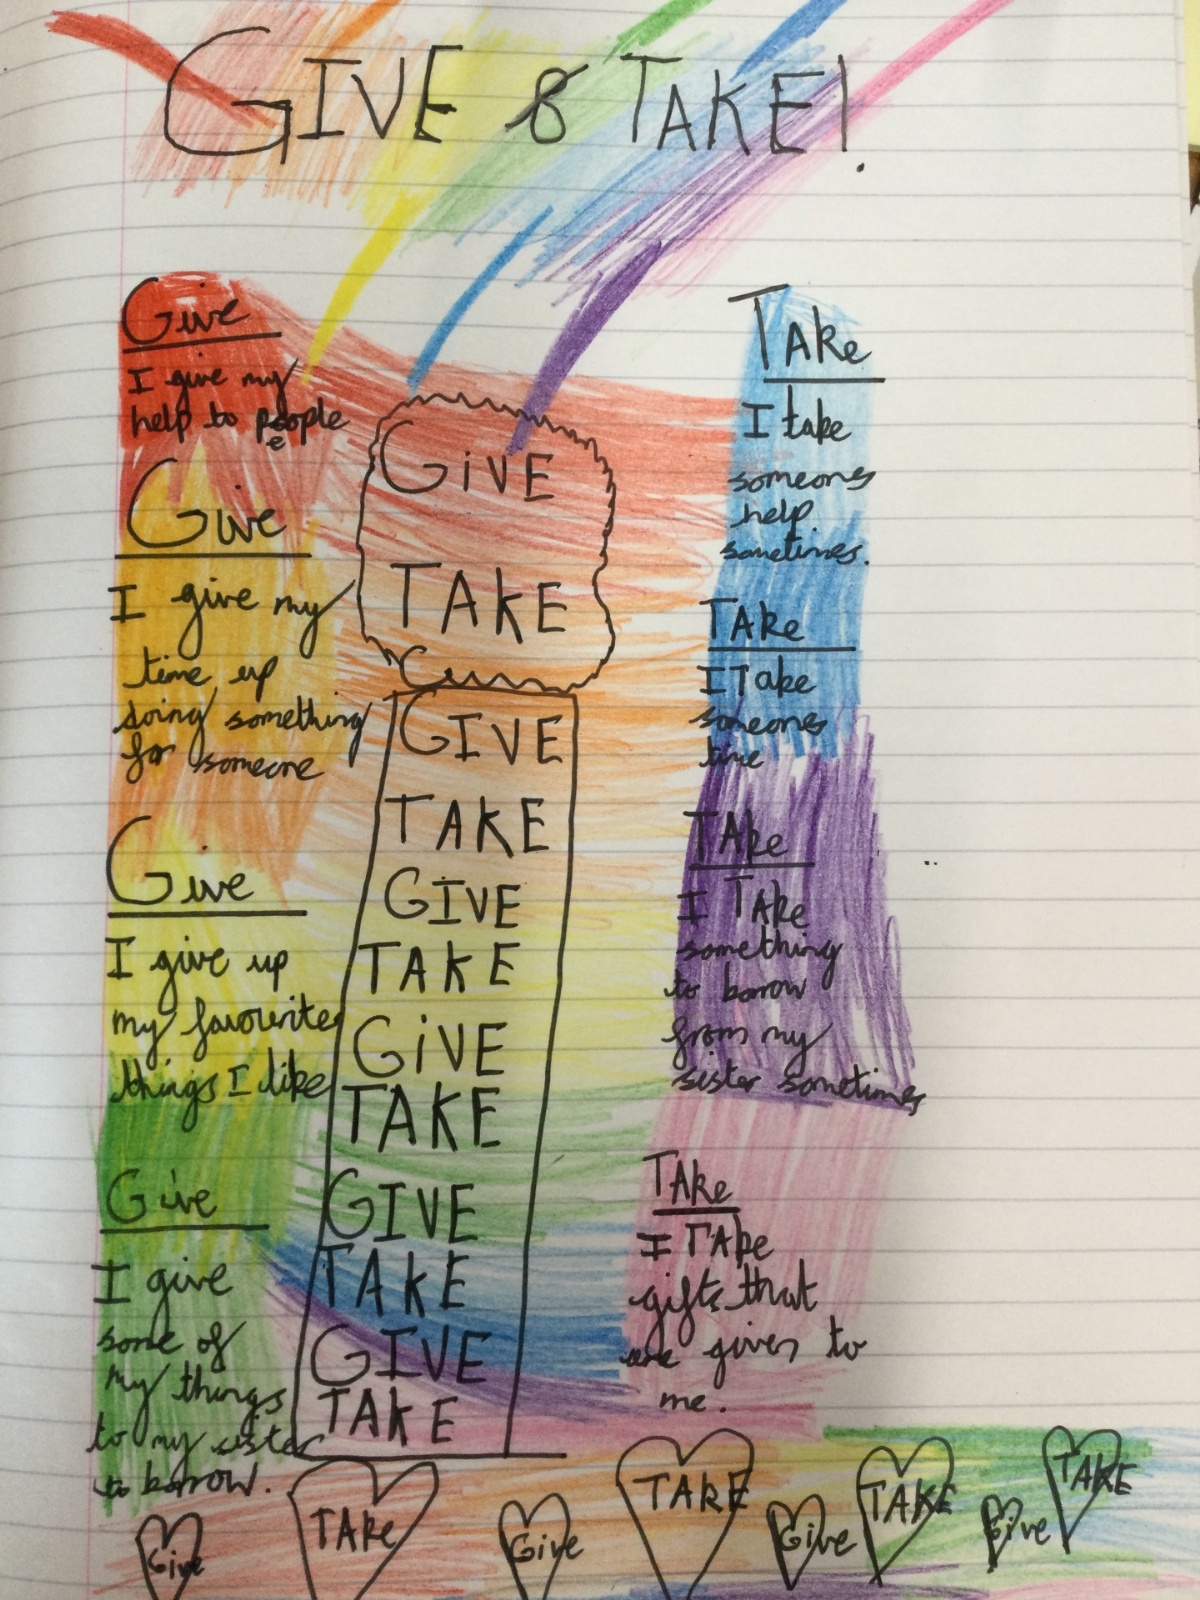 GIVE & TAKE!
Give
I give my
help to people
Give
I give my
time up
doing something
for someone
Give
I give up
my favourite
things I like
Give
I give
some of
my things
to my sister
to borrow.
GiVE
TAKE
GIVE
TAKE
GIVE
TAKE
GiVE
TAKE
GIVE
TAKE
GIVE
TAKE
TAKe
I take
someones
help
sometimes.
TAKe
I Take
someones
time
TAke
I TAke
something
to borrow
from my
sister sometimes
TAKe
I TAke
gifts that
are given to
me.
Give
TAKe
Give
TAKE
Give
TAKE
Give
TAKE